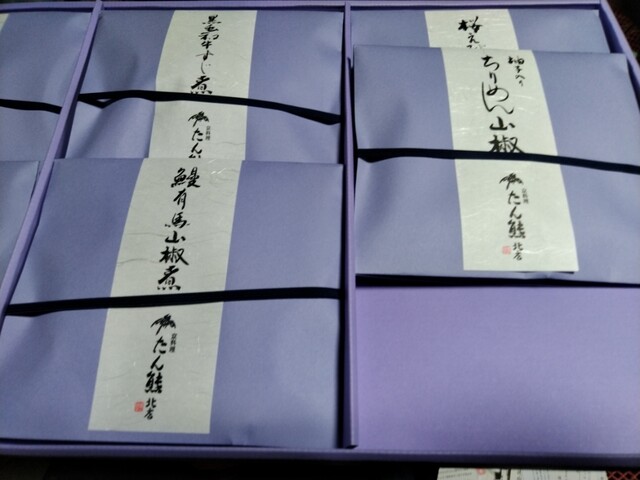 黒毛和牛すじ煮
京料理
たん熊
鰻有馬山椒煮
京料理
たん熊
北店
柚子入り
ちりめん山椒
京料理
たん熊
北店